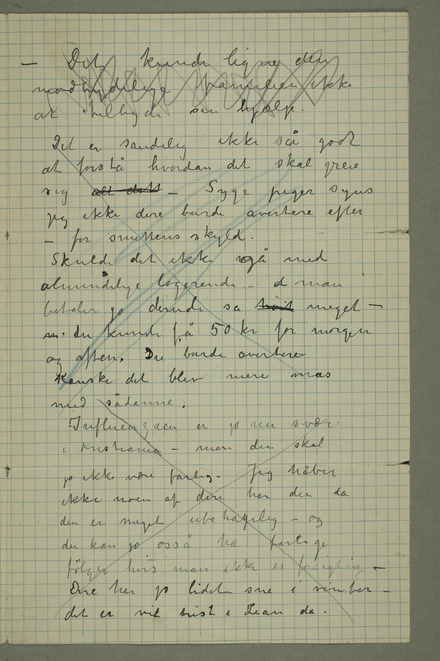 — Det kunde ligne den
modbydelige familien ikke
at tilbyde sin hjælp.
Det er sandelig ikke så godt
at forstå hvordan det skal greie
sig — Syge piger synes
jeg ikke dere burde avertere efter
— for smittens skyld.
Skulde det ikke gå med
almindelige logerende — man
betaler jo dernede så meget —
du kunde få 50 kr for morgen
og aften. Du burde avertere
Kanske det blev mere mas
med sådanne.
Influenzaen er jo nu svær
i Kristiania — men den skal
jo ikke være farlig. Jeg håber
ikke noen af dere har den da
den er meget ubehagelig — og
den kan jo også ha farlige
følger hvis man ikke er forsigtig —
Dere har jo lidet sne i vinter —
det er vel trist i Lean da.